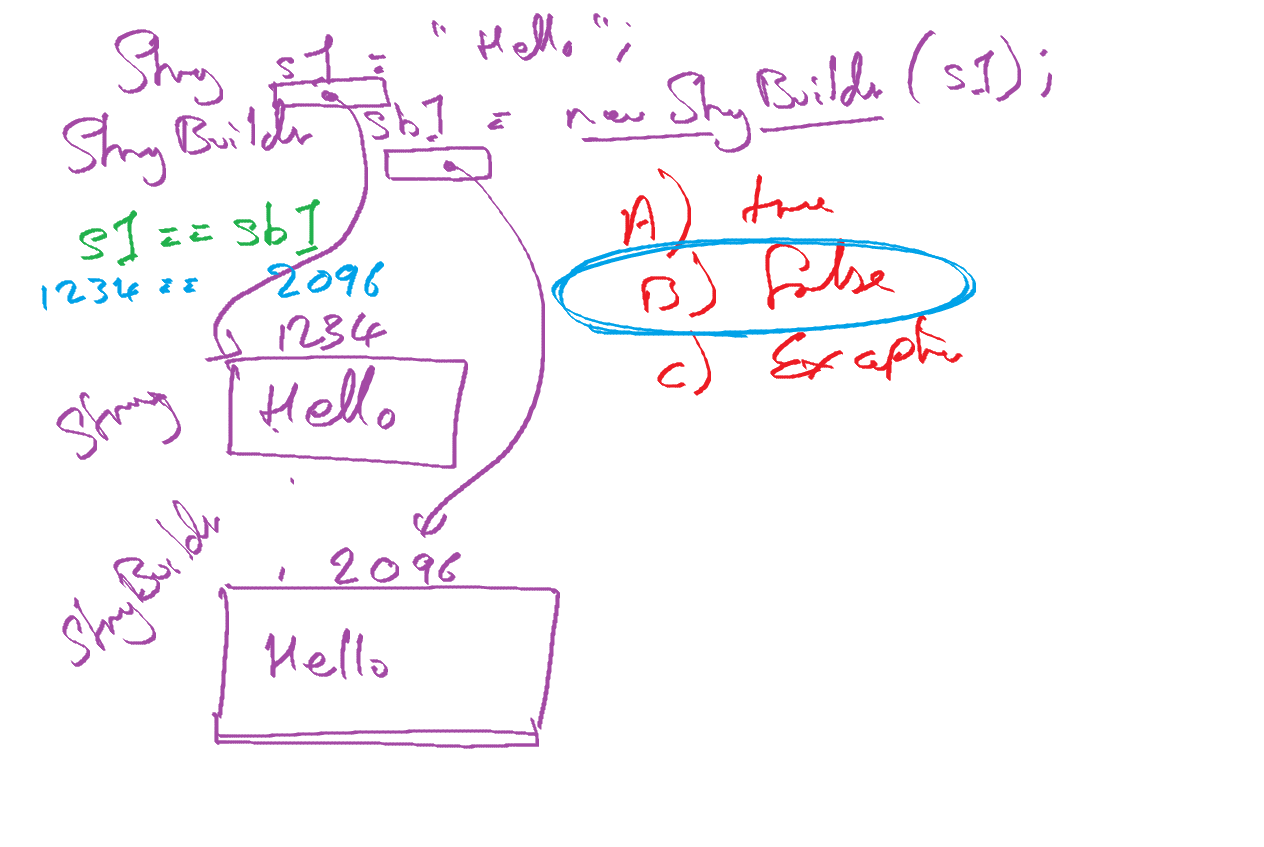 String s1 = "Hello";
StringBuilder sb1 = new StringBuilder (s1);
s1 == sb1
1234 == 2096
A) true
B) False
C) Exception
1234
String
Hello
StringBuilder
2096
Hello